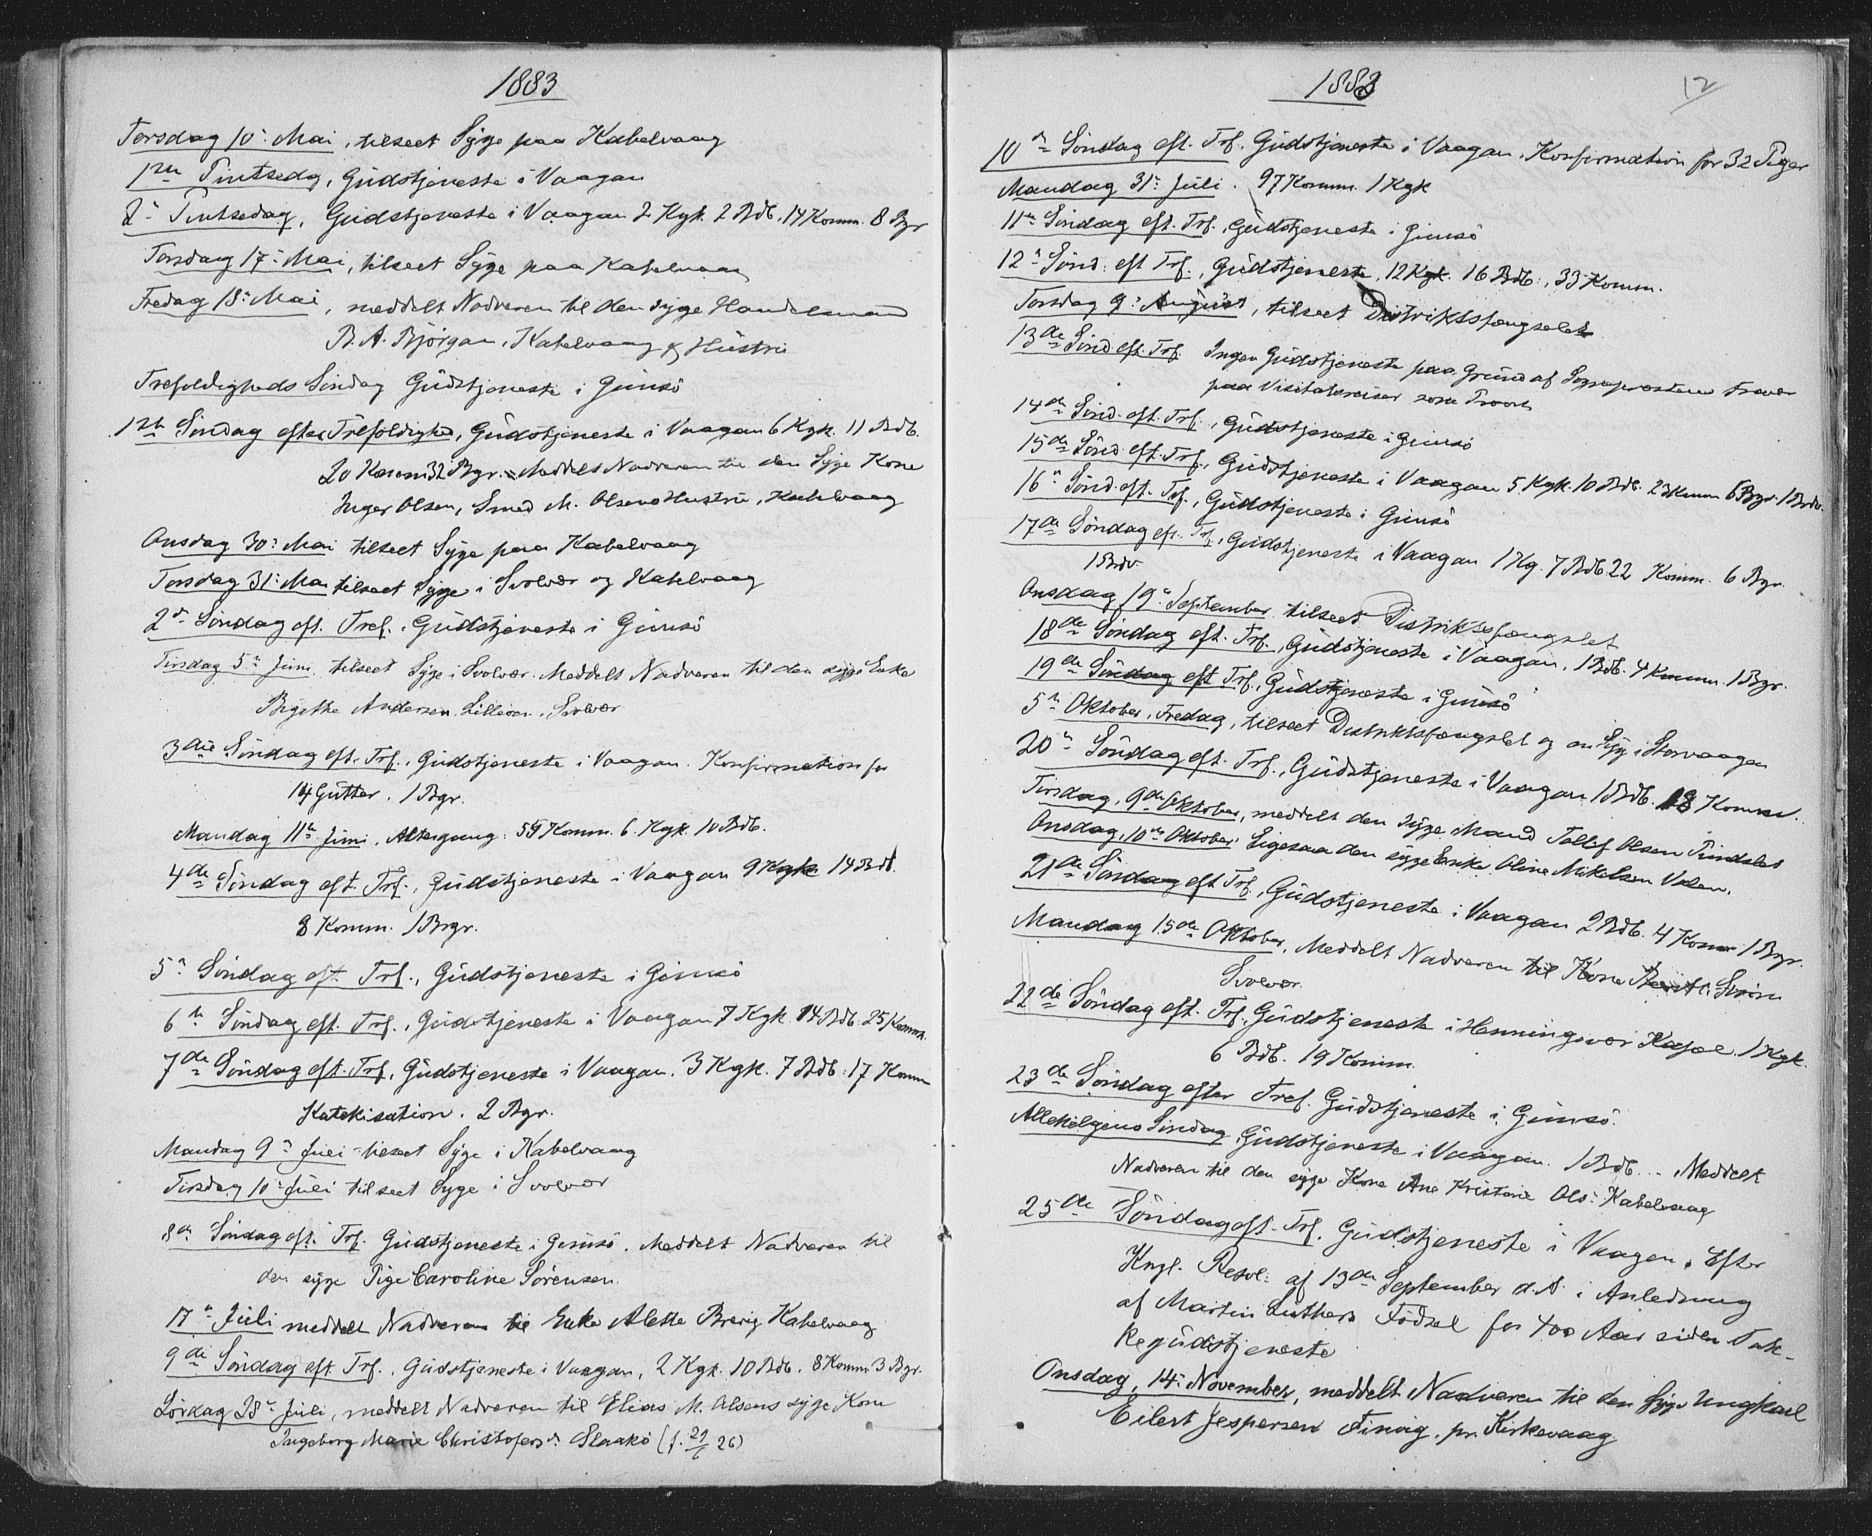 1883
Torsdag 10: Mai, tilseet Syge paa Kabelvaag
1ste Pintsedg, Gudstjeneste i Vaagan
2: Pintsedag, Gudstjeneste i Vaagan 2 Kgk. 2 Bdb. 14 Komm. 8 Bgr
Torsdag 17: Mai, tilseet Syge paa Kabelvaag
Fredag 18: Mai, meddelt Nadveren til den syge Handelsmand
B. A. Björgan, Kabelvaag & Hustru
Trefoldigheds Söndag Gudstjeneste i Gimsö
1ste Söndag efter Trefoldighd, Gudstjeneste i Vaagan 6 Kgk. 11 Bdb.
20 Komm 32 Bgr. Meddelt Nadveren til den Syge Kone
Inger Olsen, Smed M. Olsens Hustru, Kabelvaag
Onsdag 30: Mai tilseet Syge paa Kabelvaag
Torsdag 31: Mai tilseet Syge i Svolvær og Kabelvaag
2n Söndag eft. Tref. Gudstjeneste i Gimsö
Tirsdag 5n Juni tilseet Syge i Svolvær. Meddelt Nadveren til den syge Enke
Birgitte Andersen Svolvær
3die Söndag eft. Trf., Gudstjeneste i Vaagan. Konfirmation for
14 Gutter. 1 Bgr.
Mandag 11te Juni, Altergang: 59 Komm. 6 Kgk. 10 Bdb.
4de Söndag eft. Trf., Gudstjeneste i Vaagan 9 Kgk. 14 Bdb.
8 Komm. 1 Bgr.
5n Söndag eft. Trf., Gudstjeneste i Gimsö
6n Söndag eft. Trf., Gudstjeneste i Vaagan 7 Kgk. 14 Bdb. 25 Komm.
7de Söndag eft. Trf., Gudstjeneste i Vaagan. 3 Kgk. 7 Bdb. 17 Komm
Katekisation. 2 Bgr.
Mandag 9n Juli tilseet Syge i Kabelvaag
Tirsdag 10n Juli tilseet Syge i Svolvær
8de Söndag eft. Trf. Gudstjeneste i Gimsö. Meddelt Nadveren til
den syge Pige Caroline Sörensen.
17n Juli meddelt Nadveren til Enke Alette Brevig Kabelvaag
9de Söndag eft. Trf., Gudstjeneste i Vaagan, 2 Kgk. 10 Bdb. 8 Komm 3 Bgr.
Lördag 28n Juli, meddelt Nadveren til Elias M. Olsens syge Kone
Ingeborg Marie Christofersd: (f. 29/5 26)
1883
12
10n Söndag eft. Trf. Gudstjeneste i Vaagan, Konfirmation for 32 Piger
Mandag 31: Juli. 97 Komm. 1 Kgk
11n Söndag eft. Trf., Gudstjeneste i Gimsö
12n Sönd. eft Trf., Gudstjeneste, 12 Kgk. 16 Bdb., 33 Komm.
Torsdag 9: August, tilseet Distriktsfængselet
13de Sönd eft. Trf. Ingen Gudstjeneste paa Grund af Sogneprestens Fravær
paa Visitatsreiser som Provst
14de Sönd. eft. Trf., Gudstjeneste i Gimsö
15de Sönd. eft. Trf., Gudstjeneste i Vaagan 5 Kgk. 10 Bdb. 23 Komm 6 Bgr. 1 Brdv.
16n Sönd. eft. Trf., Gudstjeneste i Gimsö
17de Söndag eft. Trf., Gudstjeneste i Vaagan 1 Kg. 7 Bdb 22 Komm. 6 Bgr.
1 Brdv
Onsdag 19n September tilseet Distriktsfængslet
18de Söndag eft. Trf., Gudstjeneste i Vaagan, 1 Bdb. 4 Komm. 1 Bgr.
19de Söndag eft Trf., Gudstjeneste i Gimsö
5n Oktober, Fredag, tilseet Distriktsfængslet og en Syg i Storvaagen
20n Söndag eft. Trf., Gudstjeneste i Vaagan 1 Bdb. 18 Komm.
Tirsdag, 9de Oktober, meddelt den syge Mand Tollef Olsen
Onsdag, 10de Oktober. Ligesaa den syge Enke Oline Mikelsen
21de Söndag eft Trf., Gudstjeneste i Vaagan 2 Bdb. 4 Komm 1 Bgr.
Mandag 15de Oktober, Meddelt Nadveren til Kone
Svolvær.
22de Söndag eft. Trf. Gudstjeneste i Henningsvær Kapel. 1 Kgk.
6 Bdb. 19 Komm.
23de Söndag efter Tref. Gudstjeneste i Gimsö.
Allehelgens Söndag Gudstjeneste i Vaagan. 1 Bdb. - Meddelt
Nadveren til den syge Kone Ane Kristine Ols: Kabelvaag
25de Söndag eft. Trf. Gudstjeneste i Vaagen. Efter
Kngl. Resol: af 13de September d. A. i Anledning
af Martin Luthers Födsel for 400 Aar siden Tak-
kegudstjeneste
Onsdag, 14: November, meddelt Nadveren til den syge Ungkarl
Eilert Jespersen Finvig, pr. Kirkevaag